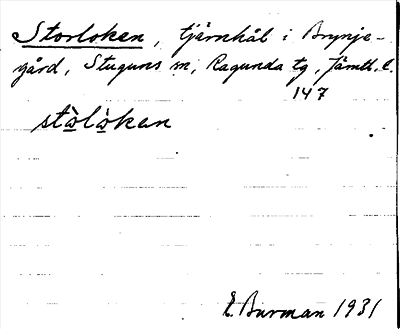 Storloken, tjärnhål i Brynje-
gård, Stuguns sn, Ragunda tg, Jämtl. l.
147
stòlòkan
E. Burman 1931